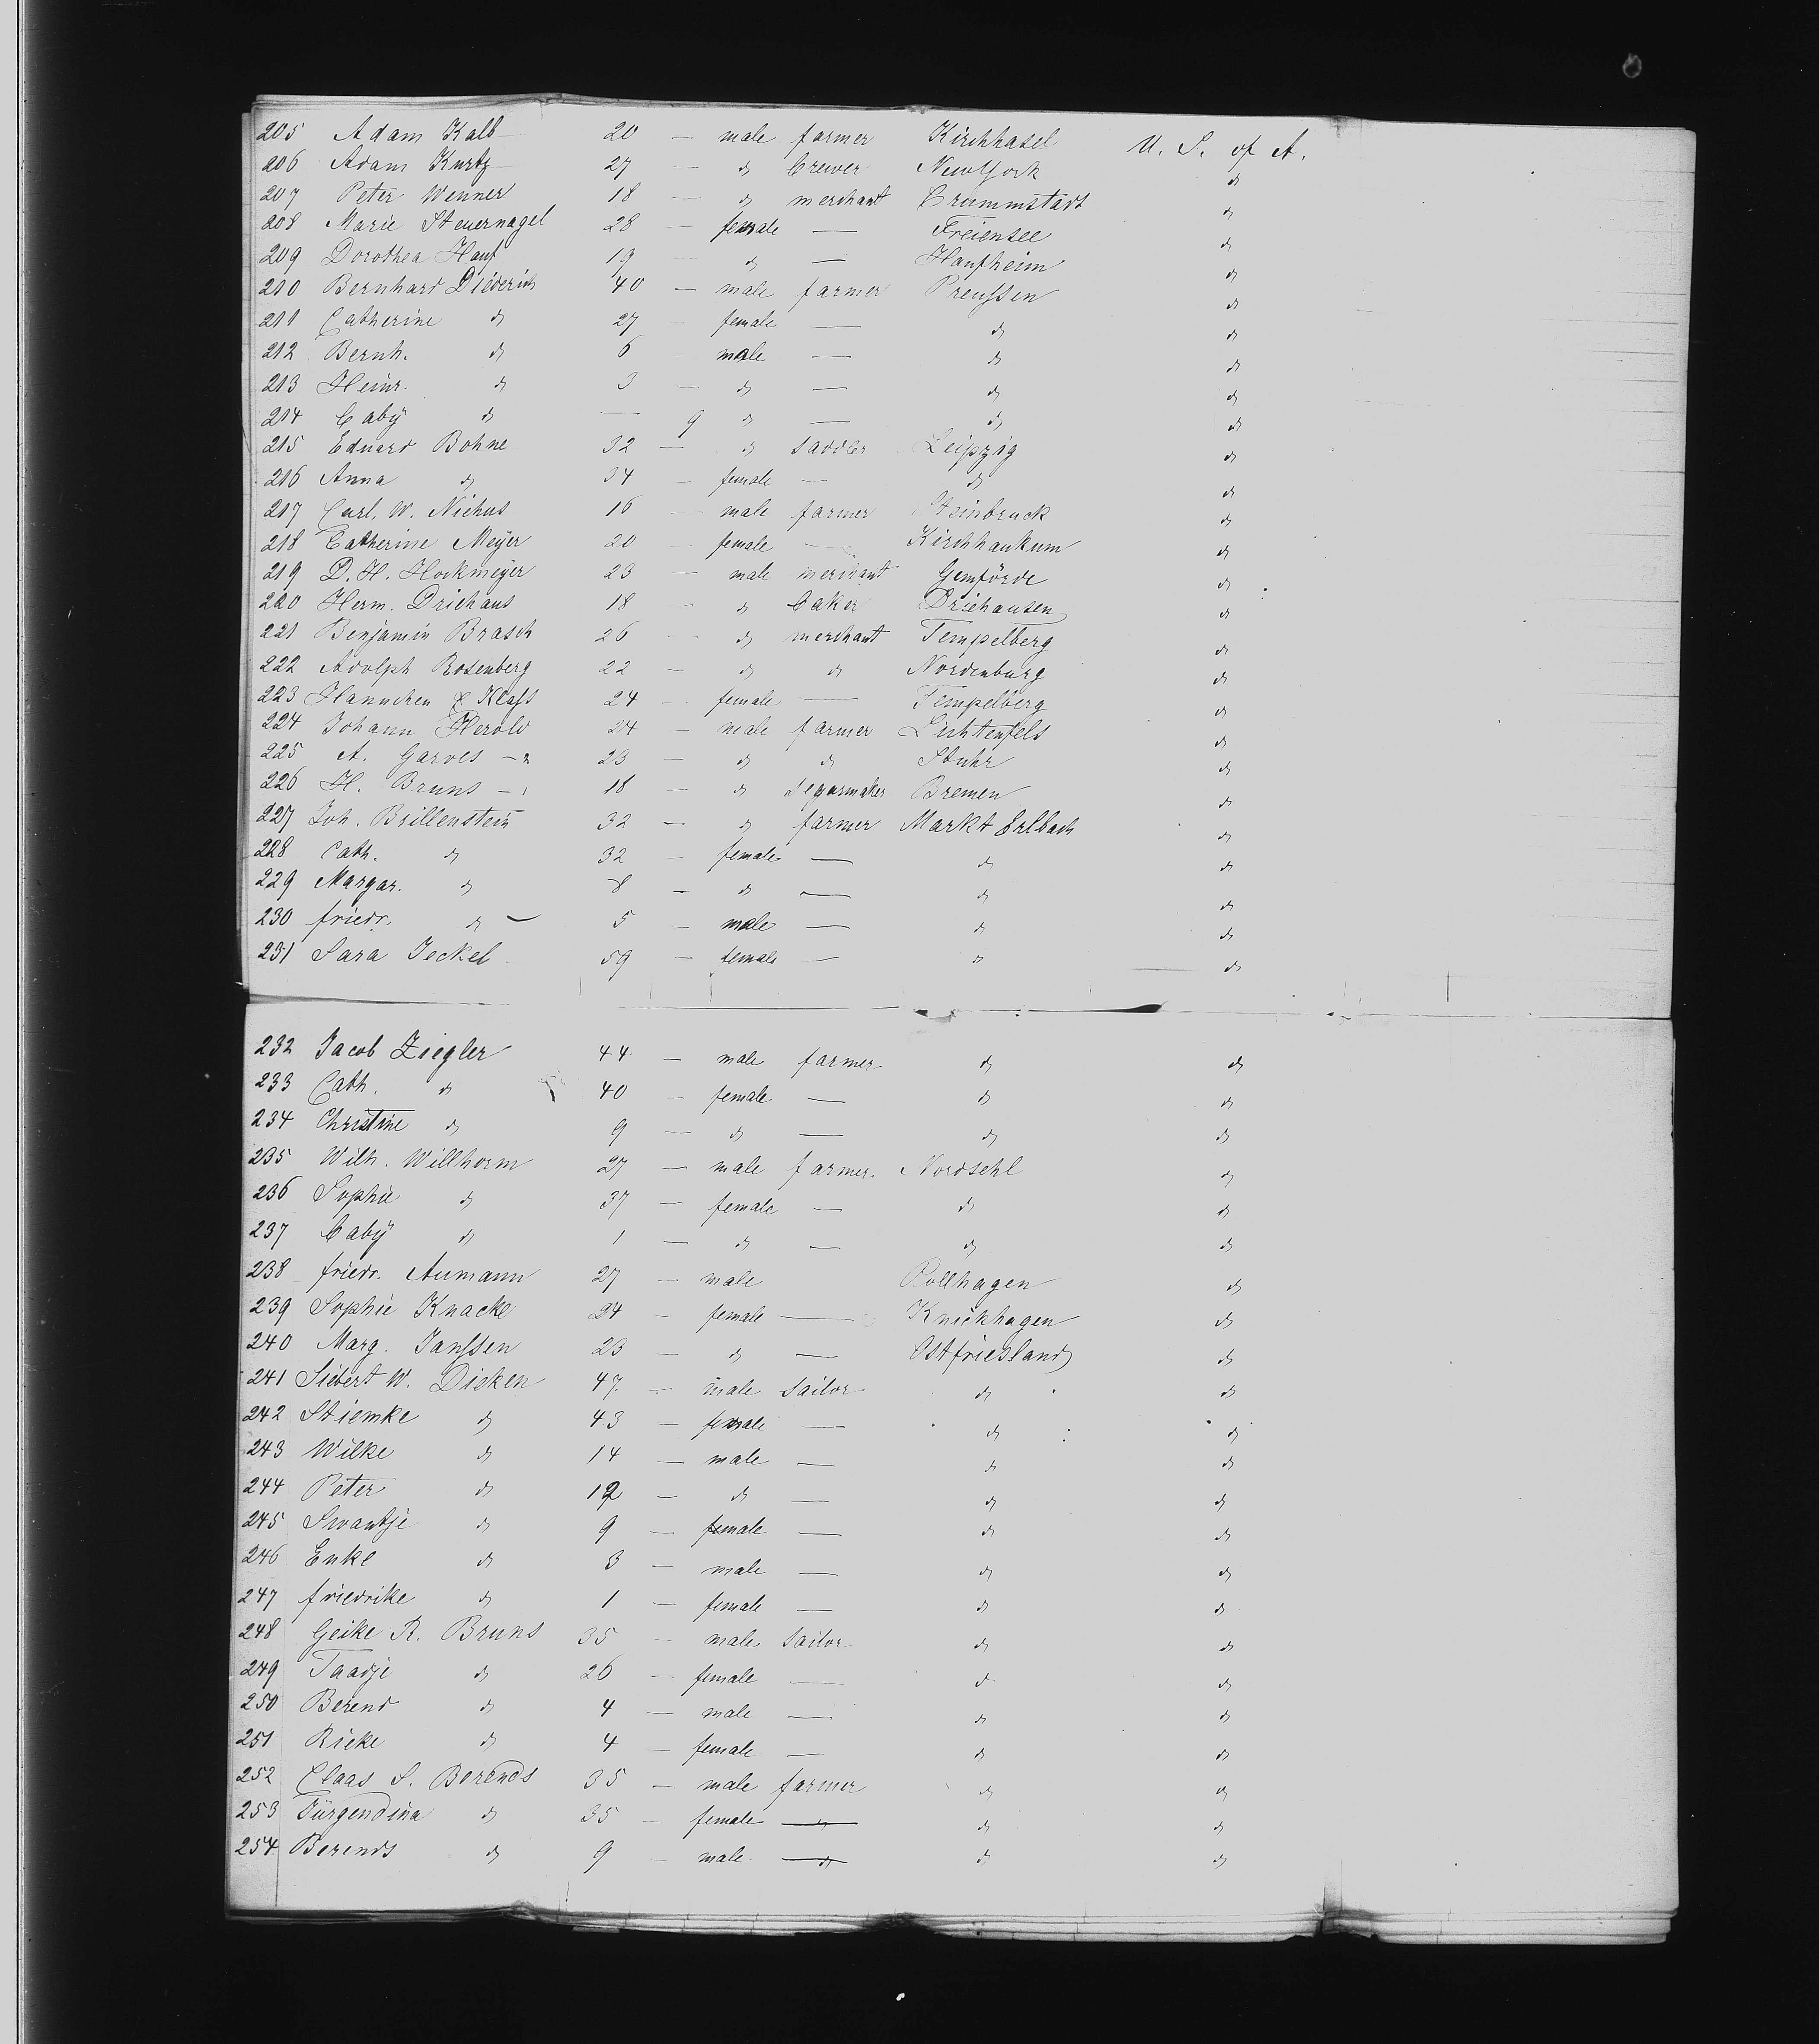 205 Adam Kalb 20 — male farmer Kirchhasel U. S. of A.
206 Adam Kurtz 27 — do brewer New York do
207 Peter Wenner 18 — do merchant Crummstadt do
208 Marie Steuernagel 28 — female — Freiensee do
209 Dorothea Hauf 19 do — Haufheim do
210 Bernhard Diederich 40 — male farmer Preußen do
211 Catherine do 27 — female — do do
212 Bernh. do 6 male — do do
213 Heinr. do 3 — do — do do
214 Baby do — 9 do — do do
215 Eduard Bohne 32 — do saddler Leipzig do
216 Anna do 34 — female — do do
217 Carl. W. Niehus 16 male farmer Steinbruck do
218 Catherine Meyer 20 — female — do
219 D. H. Hockmeyer 23 — male merchant Gemförde do
220 Herm. Driehaus 18 — do baker Driehausen do
221 Benjamin Brasch 26 do merchant Tempelberg do
222 Adolph Rosenberg 22 — do do Nordenburg do
223 Hannchen Klaß 24 — female — Tempelberg do
224 Johann Herold 24 — male farmer Lichtenfels do
225 A. Garves — 23 — do do Stuhr do
226 H. Bruns — 18 — do segarmaker Bremen do
227 Joh. Brillenstein 32 — do farmer Markt Erlbach do
228 Cath. do 32 — female — do do
229 Margar. do 8 — do — do do
230 friedr. do — 5 — male — do do
231 Sara Jeckel 59 — female — do do
232 Jacob Ziegler 44 — male farmer do do
233 Cath. do 40 — female — do do
234 Christine do 9 — do — do do
235 Wilh. Willhorm 27 — male farmer Nordsehl do
236 Sophie do 37 — female — do do
237 Baby do 1 — do — do do
238 friedr. Aumann 27 — male Pollhagen do
239 Sophie Knacke 24 — female — Knickhagen do
240 Marg. Janßen 23 — do — Ostfriesland do
241 Siebert W. Dirken 47 — male sailor do do
242 Stiemke do 43 — female — do do
243 Wilke do 14 — male — do do
244 Peter do 12 — do — do do
245 Swantje do 9 — female — do do
246 Enke do 3 — male — do do
247 friedrike do 1 — female — do do
248 Geike R. Bruns 35 — male sailor do do
249 Taadje do 26 — female — do do
250 Berend do 4 — male — do do
251 Rieke do 4 — female — do do
252 Claas S. Berends 35 — male farmer do do
253 Jürgendina do 35 — female — do do
254 Berends do 9 — male — do do